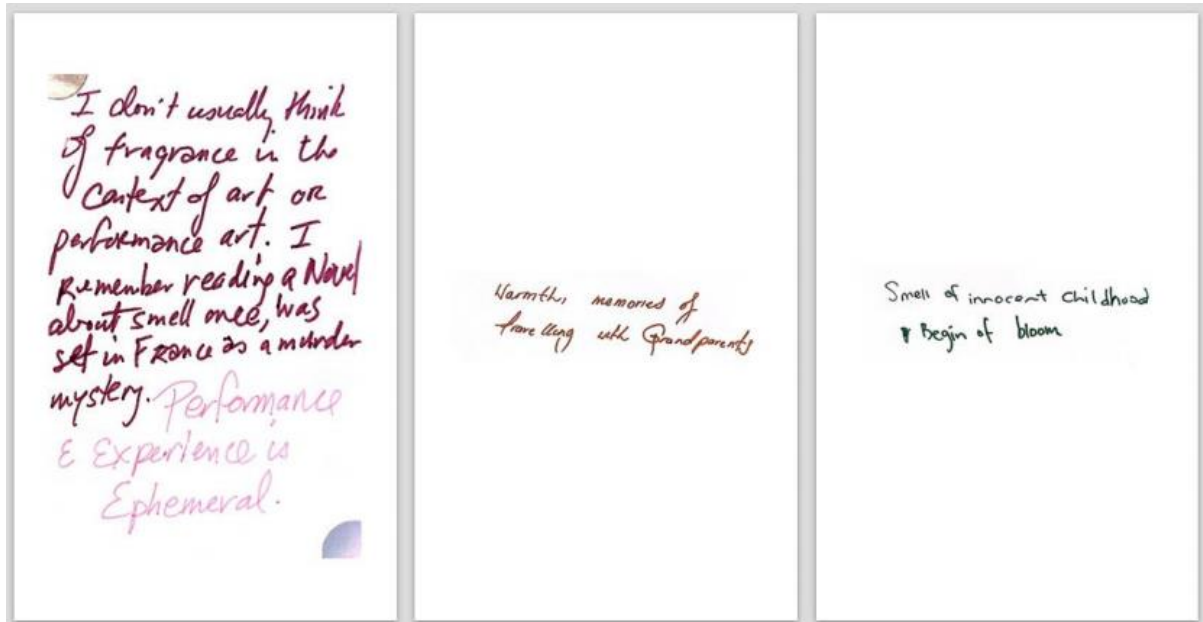 I don't usually think
of fragrance in the
context of art or
performance art. I
Remember reading a Novel
about smell once, was
set in France as a murder
mystery. Performance
& Experience is
Ephemeral.
Warmth, memories of
travelling with Grandparents
Smell of innocent childhood
Begin of bloom